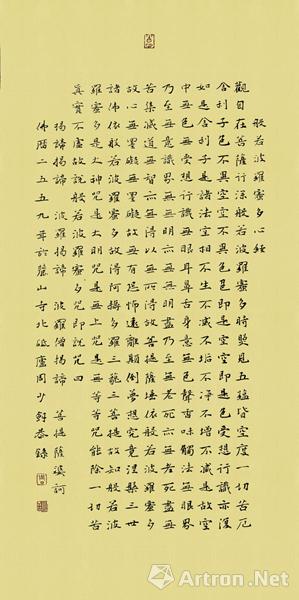 般若波羅蜜多心經
觀自在菩薩行深般若波羅蜜多時照見五蘊皆空度一切苦厄
舍利子色不異空空不異色色即是空空即是色受想行識亦復
如是舍利子是諸法空相不生不滅不垢不淨不增不減是故空
中無色無受想行識無眼耳鼻舌身意無色聲香味觸法無眼界
乃至無意識界無無明亦無無明盡乃至無老死亦無老死盡無
苦集滅道無智亦無得以無所得故菩提薩埵依般若波羅蜜多
故心無罣礙無罣礙故無有恐怖遠離顛倒夢想究竟涅槃三世
諸佛依般若波羅蜜多故得阿耨多羅三藐三菩提故知般若波
羅蜜多是大神咒是大明咒是無上咒是無等等咒能除一切苦
真實不虛故說般若波羅蜜多咒即說咒曰
揭諦揭諦 波羅揭諦 波羅僧揭諦 菩提薩婆訶
佛曆二五五九年於麓山寺北廬周少恭錄
Artron.Net